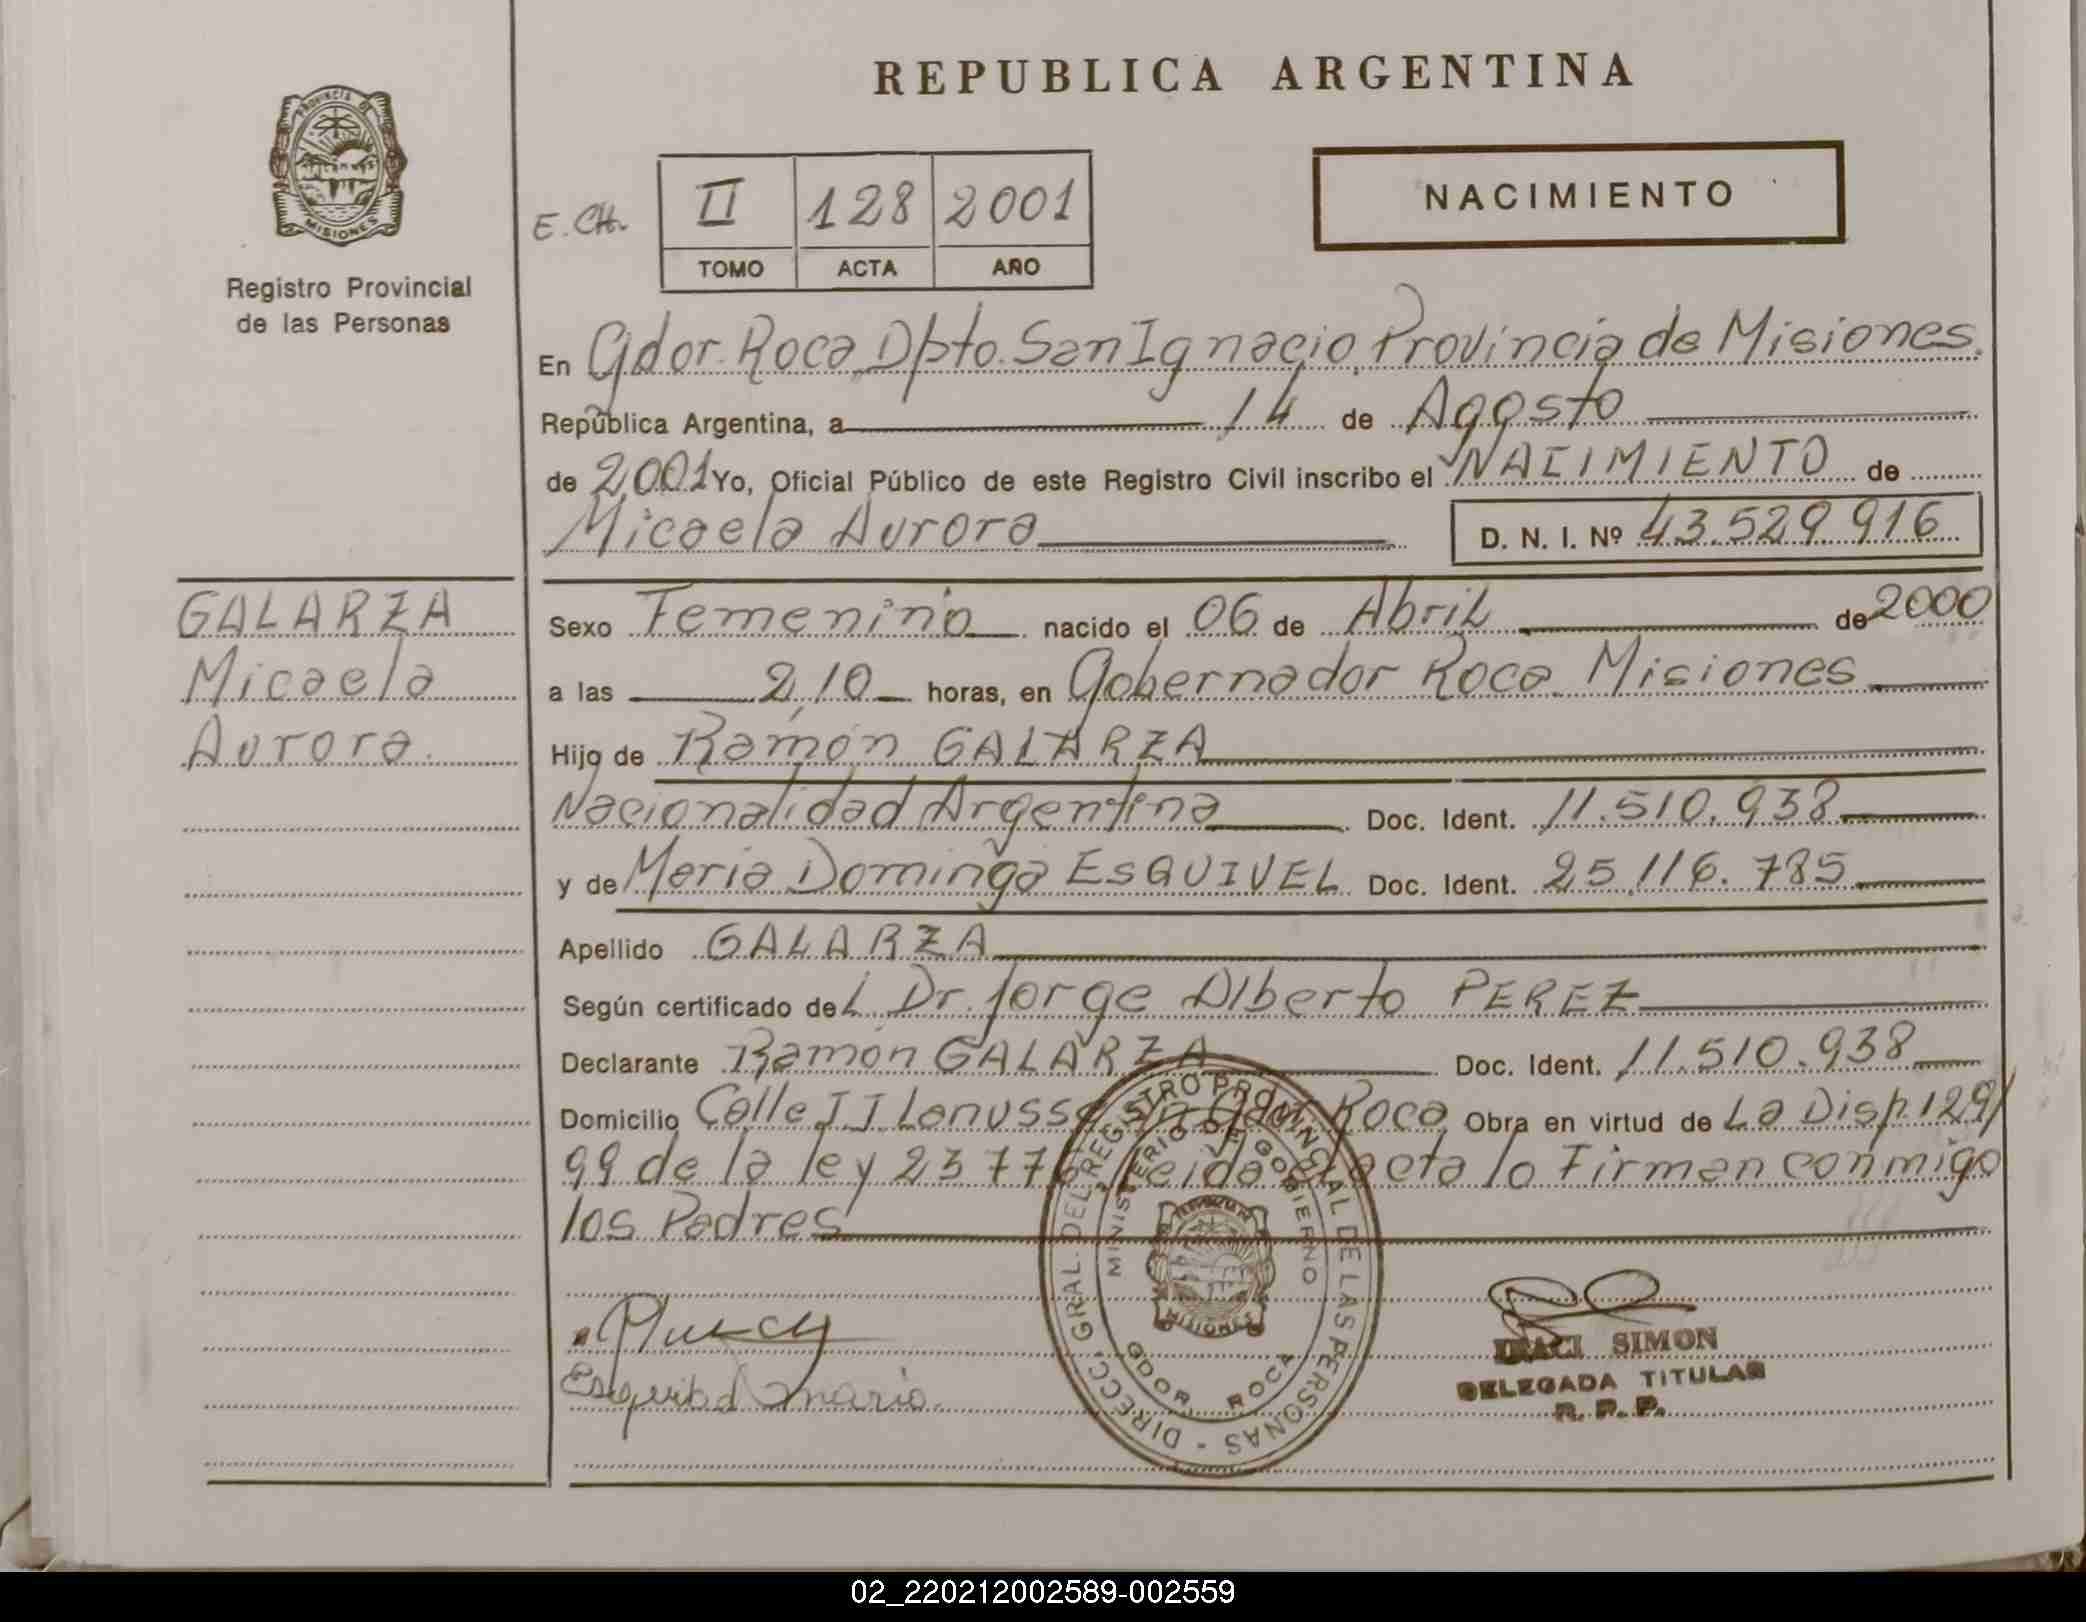 REPUBLICA ARGENTINA
PROVINCIA DE
MISIONES
Registro Provincial
de las Personas
E. CH.
II 128 2001
TOMO ACTA AÑO
NACIMIENTO
En Gdor. Roca Dpto. San Ignacio, Provincia de Misiones.
República Argentina, a 14 de Agosto
de 2001 Yo, Oficial Público de este Registro Civil inscribo el NACIMIENTO de
Micaela Aurora D. N. I. Nº 43.529.916
GALARZA
Micaela
Aurora.
Sexo Femenino nacido el 06 de Abril de 2000
a las 2,10 horas, en Gobernador Roca Misiones
Hijo de Ramón GALARZA
Nacionalidad Argentina Doc. Ident. 11.510.938
y de Maria Dominga ESQUIVEL Doc. Ident. 25.116.785
Apellido GALARZA
Según certificado del Dr. Jorge Alberto PEREZ
Declarante Ramón GALARZA Doc. Ident. 11.510.938
Domicilio Calle J J Lanusse Gdor. Roca Obra en virtud de La Disp. 129/
99 de la ley 23776 leida el acta lo Firman conmigo
los Padres
DIRECC. GRAL. DEL REGISTRO PROVINCIAL DE LAS PERSONAS -
MINISTERIO DE GOBIERNO
MISIONES
GDOR. ROCA
Esquibel maria.
IRACI SIMON
DELEGADA TITULAR
R. P. P.
02_220212002589-002559